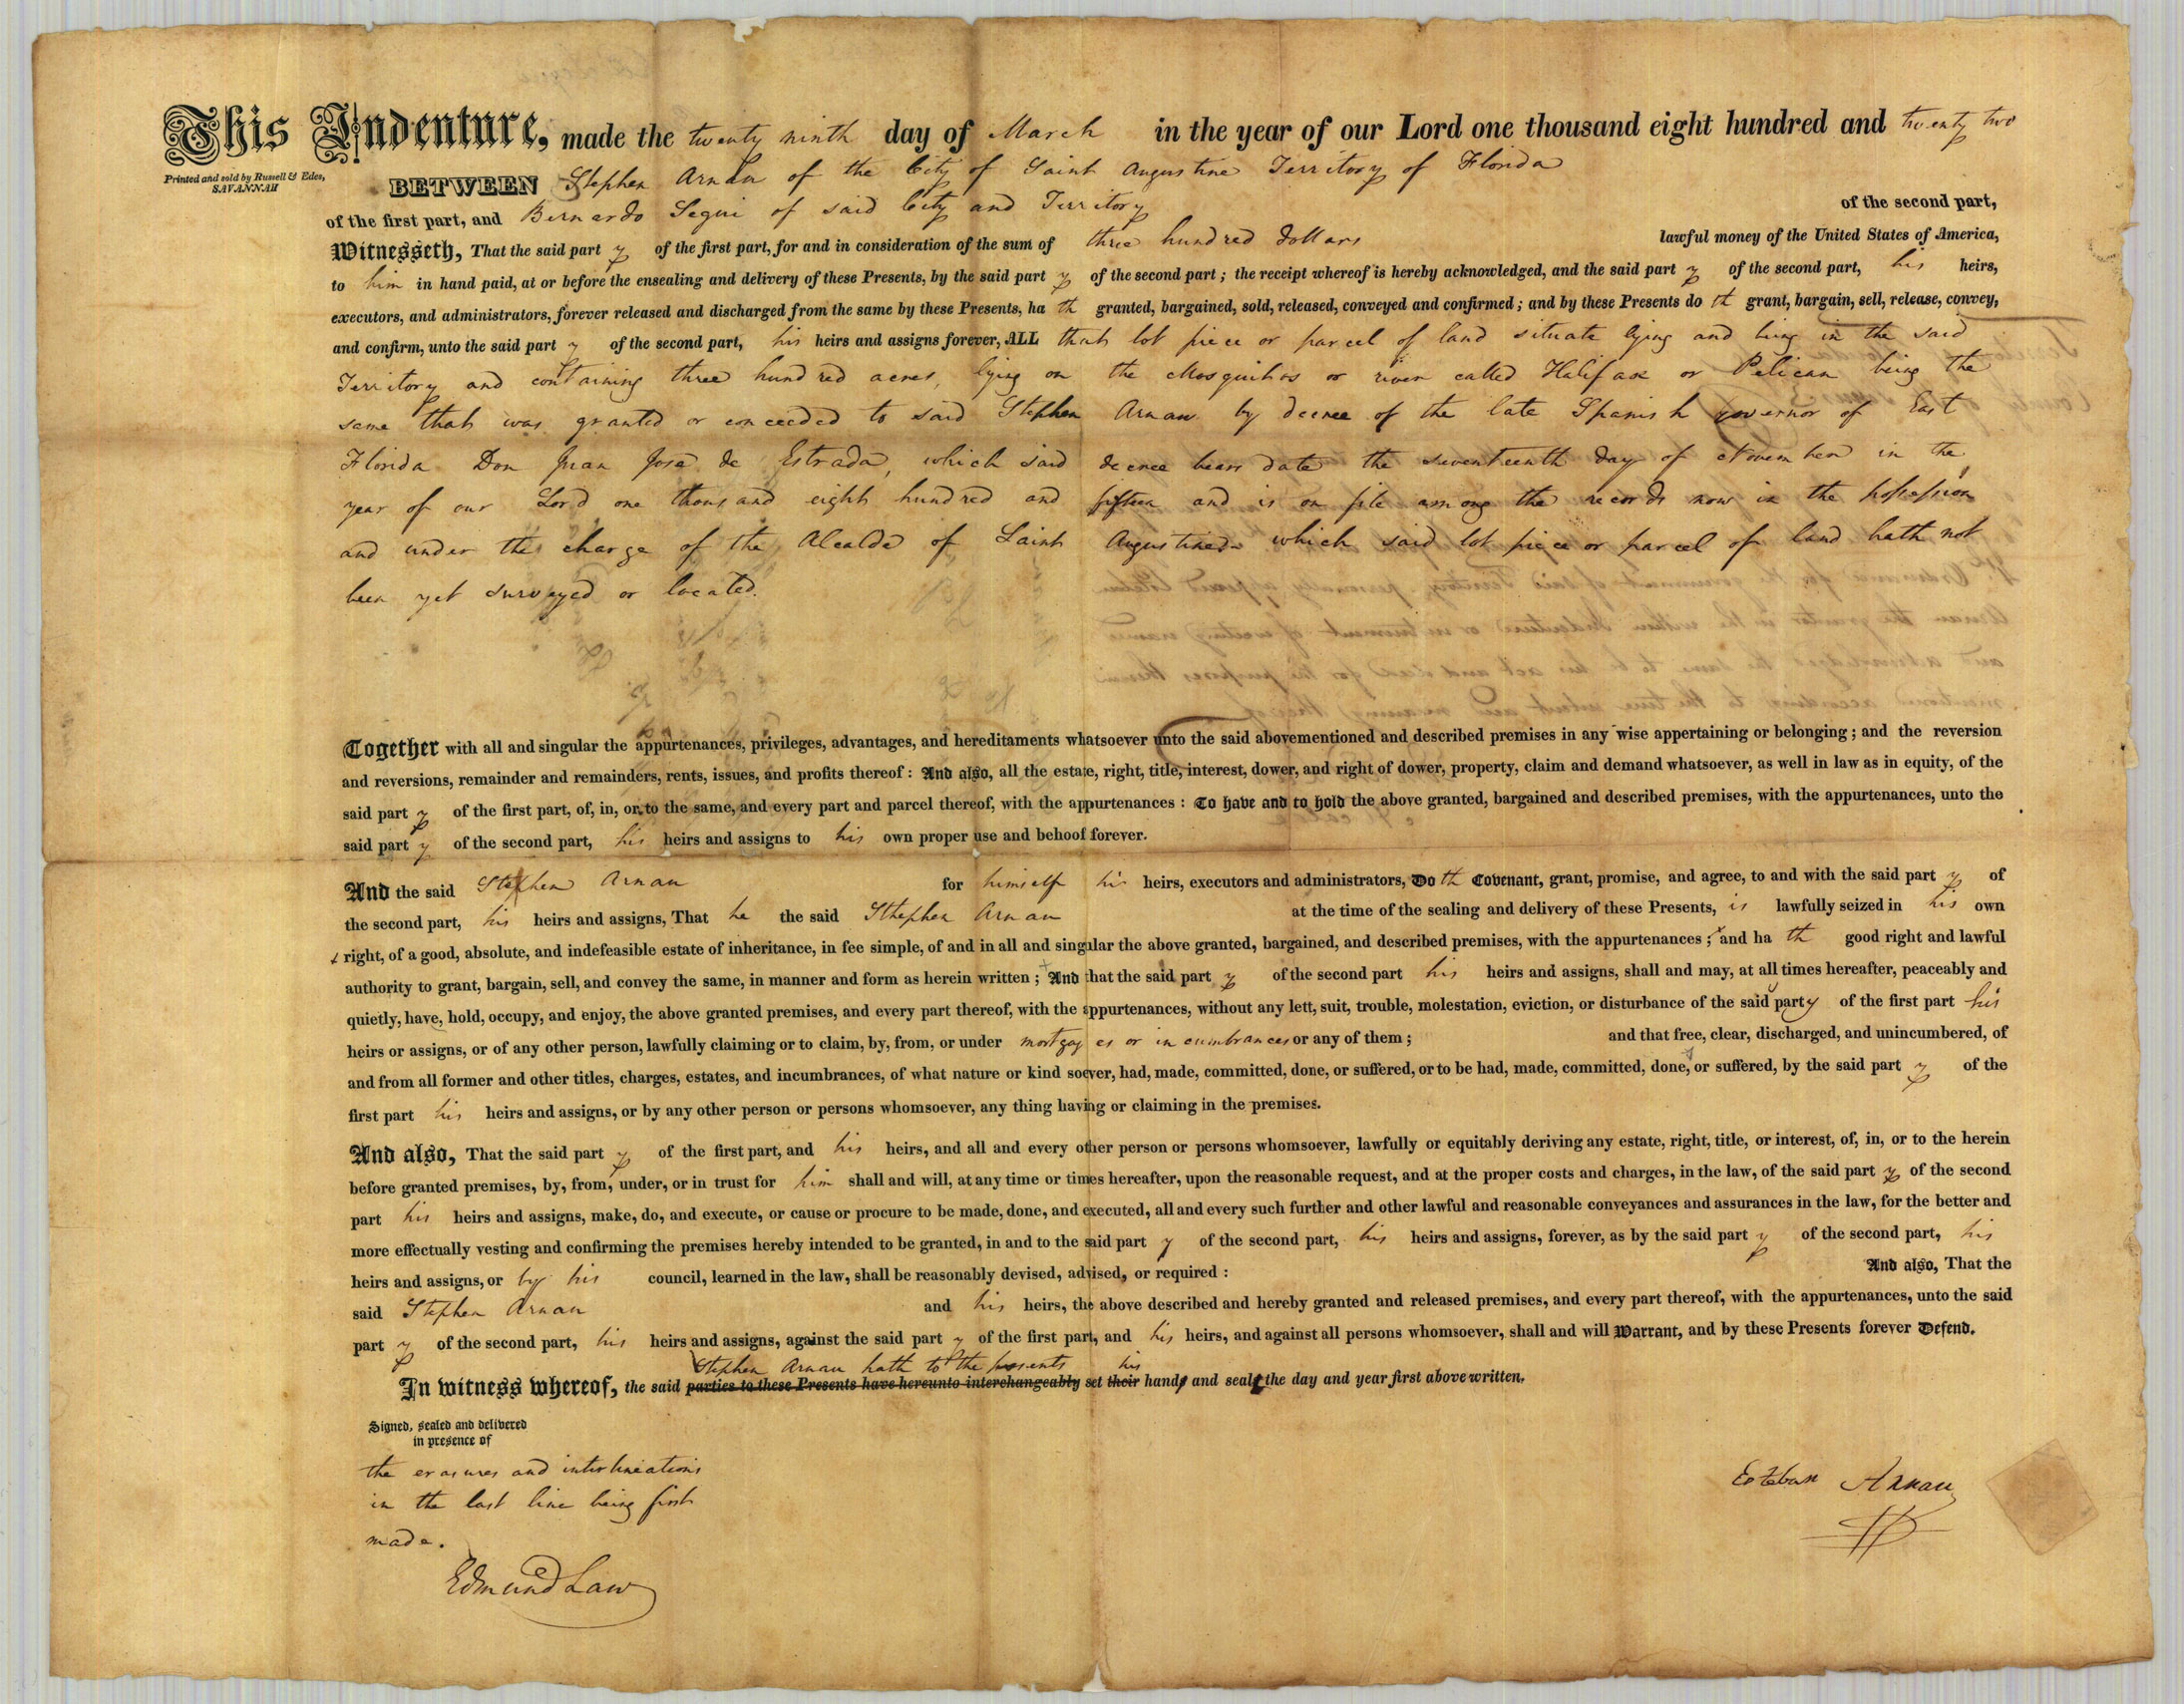 This Indenture, made the twenty ninth day of March in the year of our Lord one thousand eight hundred and twenty two
Printed and sold by Russell & Edes,
SAVANNAH
BETWEEN Stephen Arnau of the City of Saint Augustine Territory of Florida
of the first part, and Bernardo Segui of said City and Territory of the second part,
Witnesseth, That the said part y of the first part, for and in consideration of the sum of three hundred dollars lawful money of the United States of America,
to him in hand paid, at or before the ensealing and delivery of these Presents, by the said part y of the second part ; the receipt whereof is hereby acknowledged, and the said part y of the second part, his heirs,
executors, and administrators, forever released and discharged from the same by these Presents, ha th granted, bargained, sold, released, conveyed and confirmed ; and by these Presents do th grant, bargain, sell, release, convey,
and confirm, unto the said part y of the second part, his heirs and assigns forever, ALL that lot piece or parcel of land situate lying and being in the said
Territory and containing three hundred acres, lying on the Mosquitos or river called Halifax or Pelican being the
same that was granted or conceeded to said Stephen Arnau by decree of the late Spanish governor of East
Florida Don Juan José de Estrada, which said decree bears date the seventeenth day of November in the
year of our Lord one thousand eight hundred and fifteen and is on file among the records now in the possession
and under the charge of the Alcalde of Saint Augustine which said lot piece or parcel of land hath not
been yet surveyed or located.
Together with all and singular the appurtenances, privileges, advantages, and hereditaments whatsoever unto the said abovementioned and described premises in any wise appertaining or belonging ; and the reversion
and reversions, remainder and remainders, rents, issues, and profits thereof : And also, all the estate, right, title, interest, dower, and right of dower, property, claim and demand whatsoever, as well in law as in equity, of the
said part y of the first part, of, in, or to the same, and every part and parcel thereof, with the appurtenances : To have and to hold the above granted, bargained and described premises, with the appurtenances, unto the
said part y of the second part, his heirs and assigns to his own proper use and behoof forever.
And the said Stephen Arnau for himself his heirs, executors and administrators, Do th Covenant, grant, promise, and agree, to and with the said part y of
the second part, his heirs and assigns, That he the said Sthephen Arnau at the time of the sealing and delivery of these Presents, is lawfully seized in his own
right, of a good, absolute, and indefeasible estate of inheritance, in fee simple, of and in all and singular the above granted, bargained, and described premises, with the appurtenances ; and ha th good right and lawful
authority to grant, bargain, sell, and convey the same, in manner and form as herein written ; And that the said part y of the second part his heirs and assigns, shall and may, at all times hereafter, peaceably and
quietly, have, hold, occupy, and enjoy, the above granted premises, and every part thereof, with the appurtenances, without any lett, suit, trouble, molestation, eviction, or disturbance of the said party of the first part his
heirs or assigns, or of any other person, lawfully claiming or to claim, by, from, or under mortgages or incumbrances or any of them ; and that free, clear, discharged, and unincumbered, of
and from all former and other titles, charges, estates, and incumbrances, of what nature or kind soever, had, made, committed, done, or suffered, or to be had, made, committed, done, or suffered, by the said part y of the
first part his heirs and assigns, or by any other person or persons whomsoever, any thing having or claiming in the premises.
And also, That the said part y of the first part, and his heirs, and all and every other person or persons whomsoever, lawfully or equitably deriving any estate, right, title, or interest, of, in, or to the herein
before granted premises, by, from, under, or in trust for him shall and will, at any time or times hereafter, upon the reasonable request, and at the proper costs and charges, in the law, of the said part y of the second
part his heirs and assigns, make, do, and execute, or cause or procure to be made, done, and executed, all and every such further and other lawful and reasonable conveyances and assurances in the law, for the better and
more effectually vesting and confirming the premises hereby intended to be granted, in and to the said part y of the second part, his heirs and assigns, forever, as by the said part y of the second part, his
heirs and assigns, or by his council, learned in the law, shall be reasonably devised, advised, or required : And also, That the
said Stephen Arnau and his heirs, the above described and hereby granted and released premises, and every part thereof, with the appurtenances, unto the said
part y of the second part, his heirs and assigns, against the said part y of the first part, and his heirs, and against all persons whomsoever, shall and will Warrant, and by these Presents forever Defend.
Stephen Arnau hath to the presents his
In witness whereof, the said parties to these Presents have hereunto interchangeably set their hands and seals the day and year first above written.
Signed, sealed and delivered
in presence of
the erasures and interlineations
in the last line being first
made.
Edmund Law
Esteban Arnau